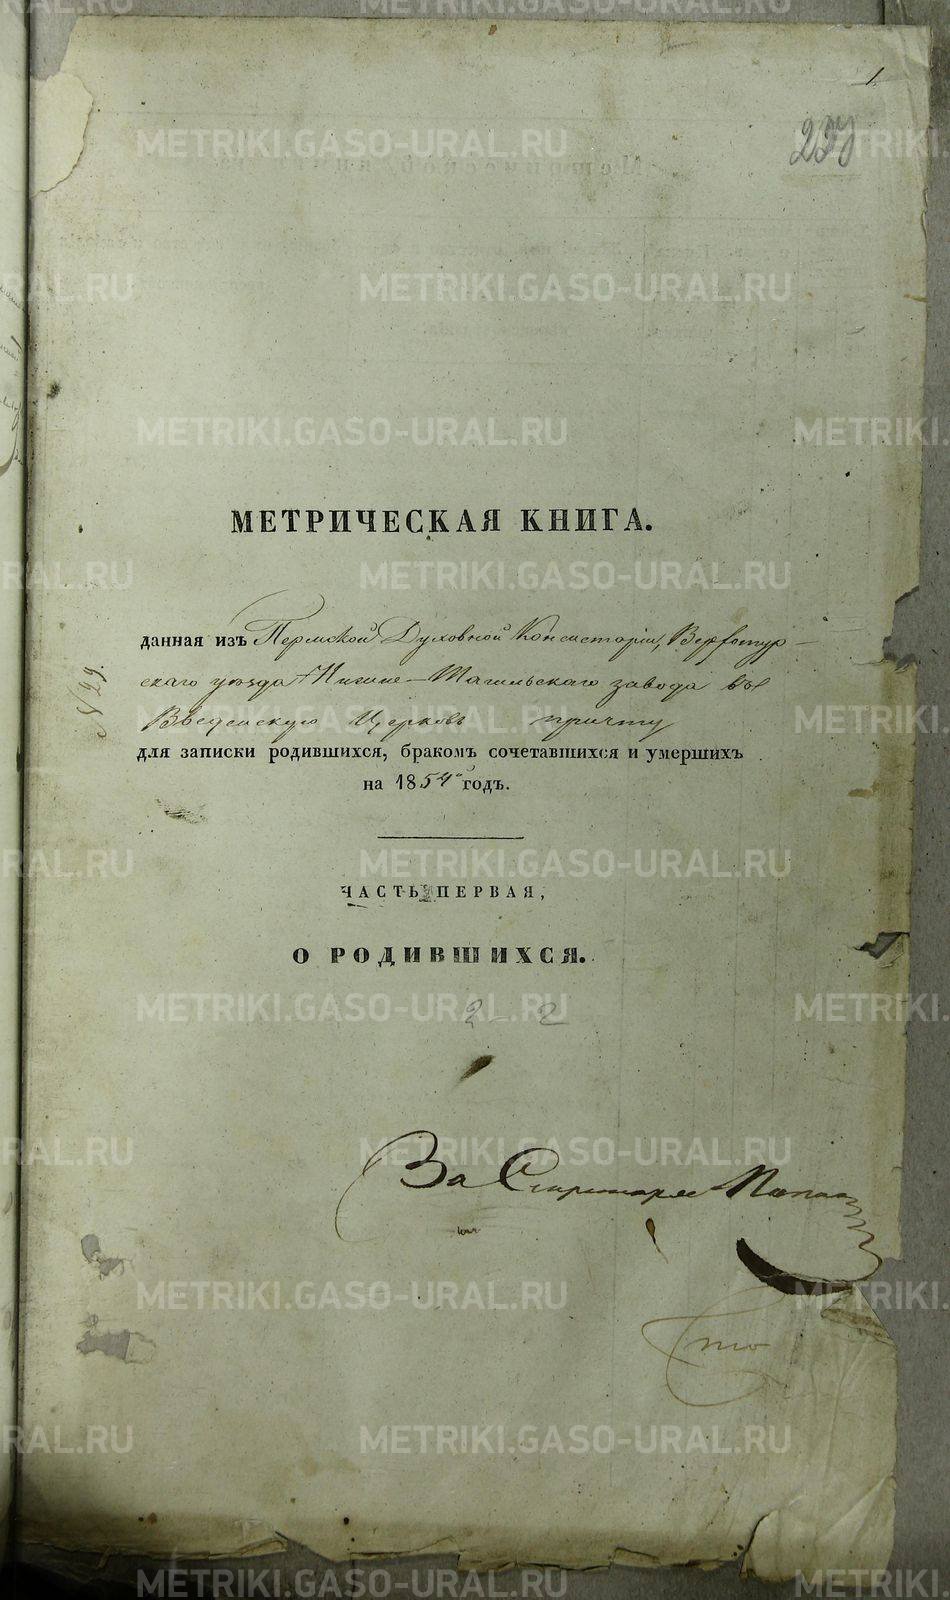 1.
МЕТРИЧЕСКАЯ КНИГА.
данная изъ Пермской Духовной Консисторіи, Верхотур-
скаго уѣзда Нижне-Тагильскаго завода въ
Введенскую Церковь причту
для записки родившихся, бракомъ сочетавшихся и умершихъ
на 1854 годъ.
№ 29.
ЧАСТЬ ПЕРВАЯ,
О РОДИВШИХСЯ.
2 - 2
За Секретаря
METRIKI.GASO-URAL.RU